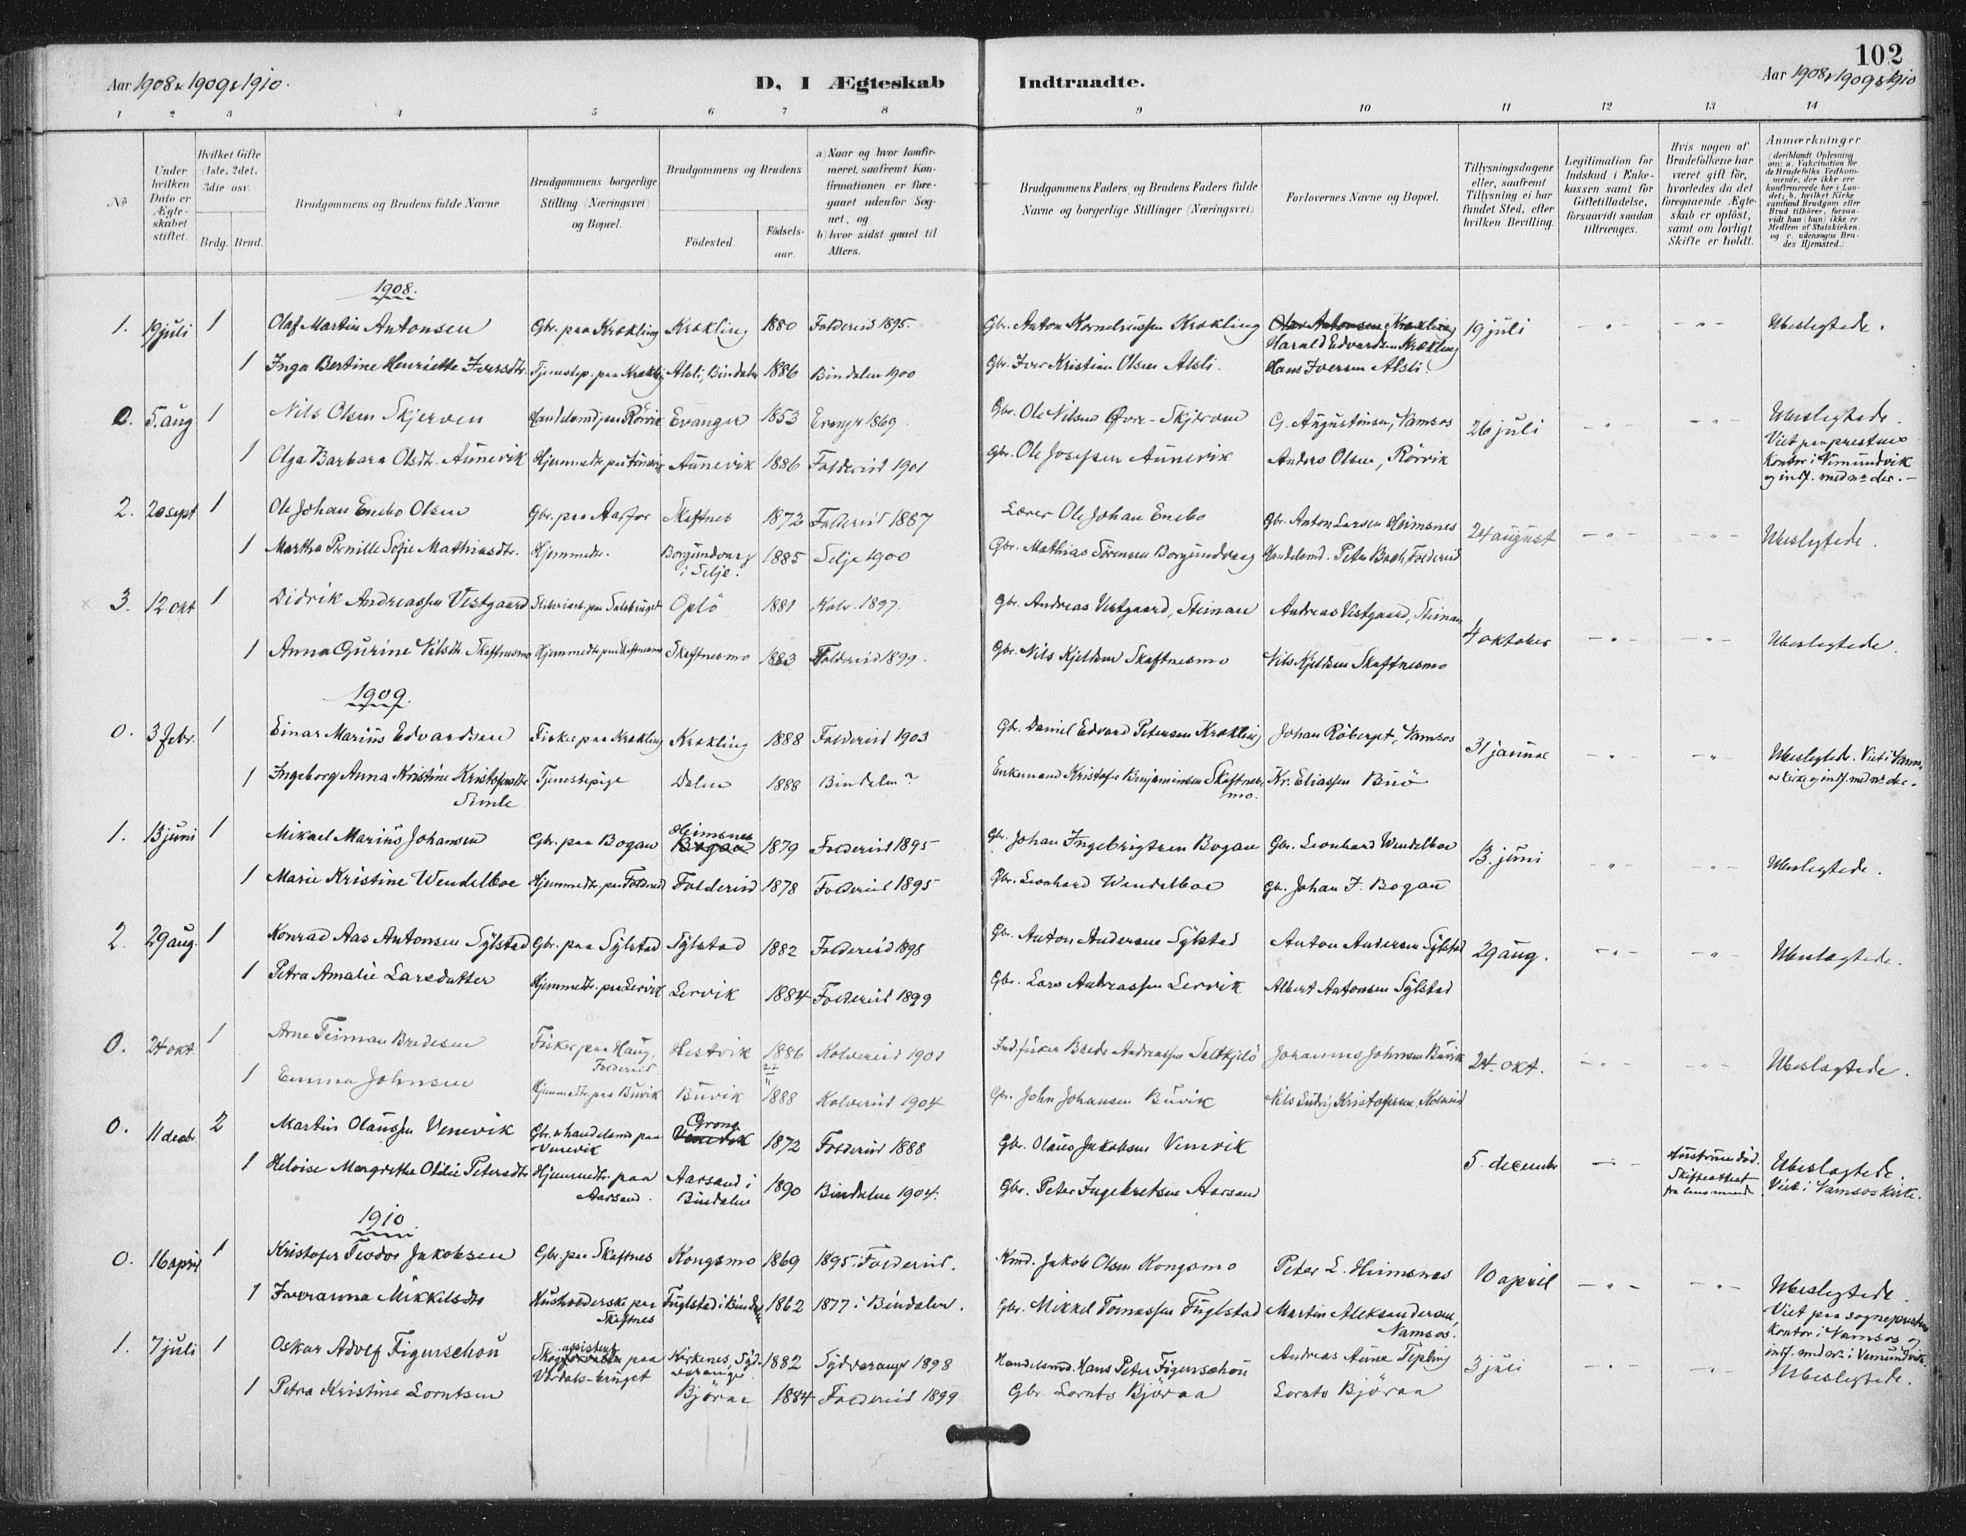 102
Aar 1908 & 1909 & 1910.
D, I Ægteskab Indtraadte.
Aar 1908 & 1909 & 1910
1 2 3 4 5 6 7 8 9 10 11 12 13 14
No
Under hvilken Dato er Ægteskabet stiftet.
Hvilket Gifte (1ste, 2det, 3die osv.)
Brdg. Brud.
Brudgommens og Brudens fulde Navne
Brudgommens borgerlige Stilling (Næringsvei) og Bopæl.
Brudgommens og Brudens
Födested.
Födselsaar.
a) Naar og hvor konfirmeret, saafremt Konfirmationen er foregaaet udenfor Sognet, og
b) hvor sidst gaaet til Alters.
Brudgommens Faders og Brudens Faders fulde Navne og borgerlige Stillinger (Næringsvei)
Forlovernes Navne og Bopæl.
Tillysningsdagene eller, saafremt Tillysning ei har fundet Sted, efter hvilken Bevilling.
Legitimation for Indskud i Enkekassen samt for Giftetilladelse, forsaavidt saadan tiltrænges.
Hvis nogen af Brudefolkene har været gift för, hvorledes da det foregaaende Ægteskab er oplöst, samt om lovligt Skifte er holdt.
Anmærkninger (deriblandt Oplysning om: a. Vakcination for de Brudefolks Vedkommende, der ikke ere konfirmerede her i Landet; b. hvilket Kirkesamfund Brudgom eller Brud tilhörer, forsaavidt han (hun) ikke er Medlem af Statskirken, og c. udensogns Brudes Hjemsted.)
1908.
1. 19 juli 1 Olaf Martin Antonsen Gbr. paa Krækling Krækling 1880 Foldereid 1895. Gbr. Anton Korneliussen Krækling Olav Antonsen Krækling 19 juli Ubeslegtede.
Harald Edvardsen Krækling
1 Inga Bertine Henriette Iversdtr. Tjenestep. paa Krækling Alsli, Bindalen 1886 Bindalen 1900 Gbr. Iver Kristian Olsen Alsli. Hans Iversen Alsli.
0. 5. aug 1 Nils Olsen Skjerven Handelsmd paa Rörvik Evanger 1853 Evanger 1869. Gbr. Ole Nilsen Øvre-Skjerven G. Augustinsen, Namsos 26 juli Ubeslegtede.
Viet paa prestens kontor i Vemundvik og indf. med no der.
1 Olga Barbara Olsdtr. Aunevik Hjemmedtr. paa Aunevik Aunevik 1886 Foldereid 1901 Gbr. Ole Josefsen Aunevik Anders Olsen, Rörvik
2. 20 sept 1 Ole Johan Enebo Olsen Gbr. paa Aarfor Skeftnes 1872 Foldereid 1887 Lærer Ole Johan Enebo Gbr. Anton Larsen Heimsnes 24 august Ubeslegtede.
1 Martha Pernille Sofie Mathiasdtr. Hjemmedtr. Borgundvaag i Selje. 1885 Selje 1900 Gbr. Mathias Sörensen Borgundvaag Handelsmd. Peter Bach, Foldereid
3. 12 okt 1 Didrik Andreassen Vestgaard Sliberiarb. paa Salsbruget Oplö 1881 Kolv. 1897. Gbr. Andreas Vestgaard, Steinan Andreas Vestgaard, Steinan 4 oktober Ubeslegtede.
1 Anna Gurine Nilsdtr. Skeftnesmo Hjemmedtr. paa Skeftnesmo Skeftnesmo 1883 Foldereid 1899. Gbr. Nils Kjeldsen Skeftnesmo Nils Kjeldsen Skeftnesmo
1909.
0. 3 febr. 1 Einar Marius Edvardsen Fisker paa Krækling Krækling 1888 Foldereid 1903 Gbr. Daniel Edvard Petersen Krækling Johan Röbergt, Namsos 31 januar Ubeslegtede. Viet i Namsos kirke og indf. med no der.
1 Ingeborg Anna Kristine Kristofersdtr. Simle Tjenestepige Dalen 1888 Bindalen? Enkemand Kristofer Benjaminsen Skeftnesmo. Kr. Eliassen Buö
1. 13 juni 1 Mikael Marius Johansen Gbr. paa Bogan Heimsnes Bogan 1879 Foldereid 1895 Gbr. Johan Ingebrigtsen Bogan Gbr. Leonhard Wendelboe 13. juni Ubeslegtede.
1 Marie Kristine Wendelboe Hjemmedtr. paa Foldereid Foldereid 1878 Foldereid 1895 Gbr. Leonhard Wendelboe Gbr. Johan I. Bogan
2. 29 aug. 1 Konrad Aas Antonsen Sylstad Gbr. paa Sylstad Sylstad 1882 Foldereid 1898 Gbr. Anton Andersen Sylstad Anton Andersen Sylstad 29 aug. Ubeslægtede.
1 Petra Amalie Larsdatter Hjemmedtr. paa Lervik Lervik 1884 Foldereid 1899 Gbr. Lars Andreassen Lervik Albert Antonsen Sylstad
0. 24 okt 1 Arne Teiman Bredesen Fisker paa Haug, Foldereid. Hestvik 1886 Kolvereid 1901 Ind. fisker Brede Andreassen Saltkjelö Johannes Johnsen Buvik 24. okt. Ubeslægtede.
1 Emma Johnsen Hjemmedtr. paa Buvik Buvik 22/11 1888 Kolvereid 1904 Gbr. John Johansen Buvik Nils Kristofersen, Kolvereid
0. 11 decbr. 2 Martin Olaussen Venevik Gbr. & handelsmd paa Venevik Grong Venevik 1872 Foldereid 1888 Gbr. Olaus Jakobsen Venevik 5. december Hustruen död. Skifteattest fra lensmand. Ubeslægtede. Viet i Namsos kirke.
1 Heloise Margrethe Otilie Petersdtr. Hjemmedtr. paa Aarsand. Aarsand i Bindalen 1890 Bindalen 1904. Gbr. Peter Ingebretsen Aarsand
1910
0. 16 april 1 Kristofer Teodor Jakobsen Gbr. paa Skeftnes Kongsmo 1869 1895 i Foldereid. Kmd. Jakob Olsen Kongsmo Peter L. Heimsnes 10 april Ubeslegtede.
Viet paa sogneprestens kontor i Namsos og indf. med no i Vemundvik.
1 Iveranna Mikkelsdtr Husholderske paa Skeftnes Fuglstad i Bindalen 1862 1877 i Bindalen. Gbr. Mikkel Tomassen Fuglstad Martin Aleksandersen, Namsos.
1. 7 juli 1 Oskar Adolf Figenschou Skogassistent paa Værdals-bruget Kirkenes, Sydvaranger 1882 Sydvaranger 1898 Handelsmd. Hans Peter Figenschou Andreas Aune Tepling 3 juli Ubeslegtede.
1 Petra Kristine Lorntsen Björaa 1884 Foldereid 1899 Gbr. Lornts Björaa Lornts Björaa